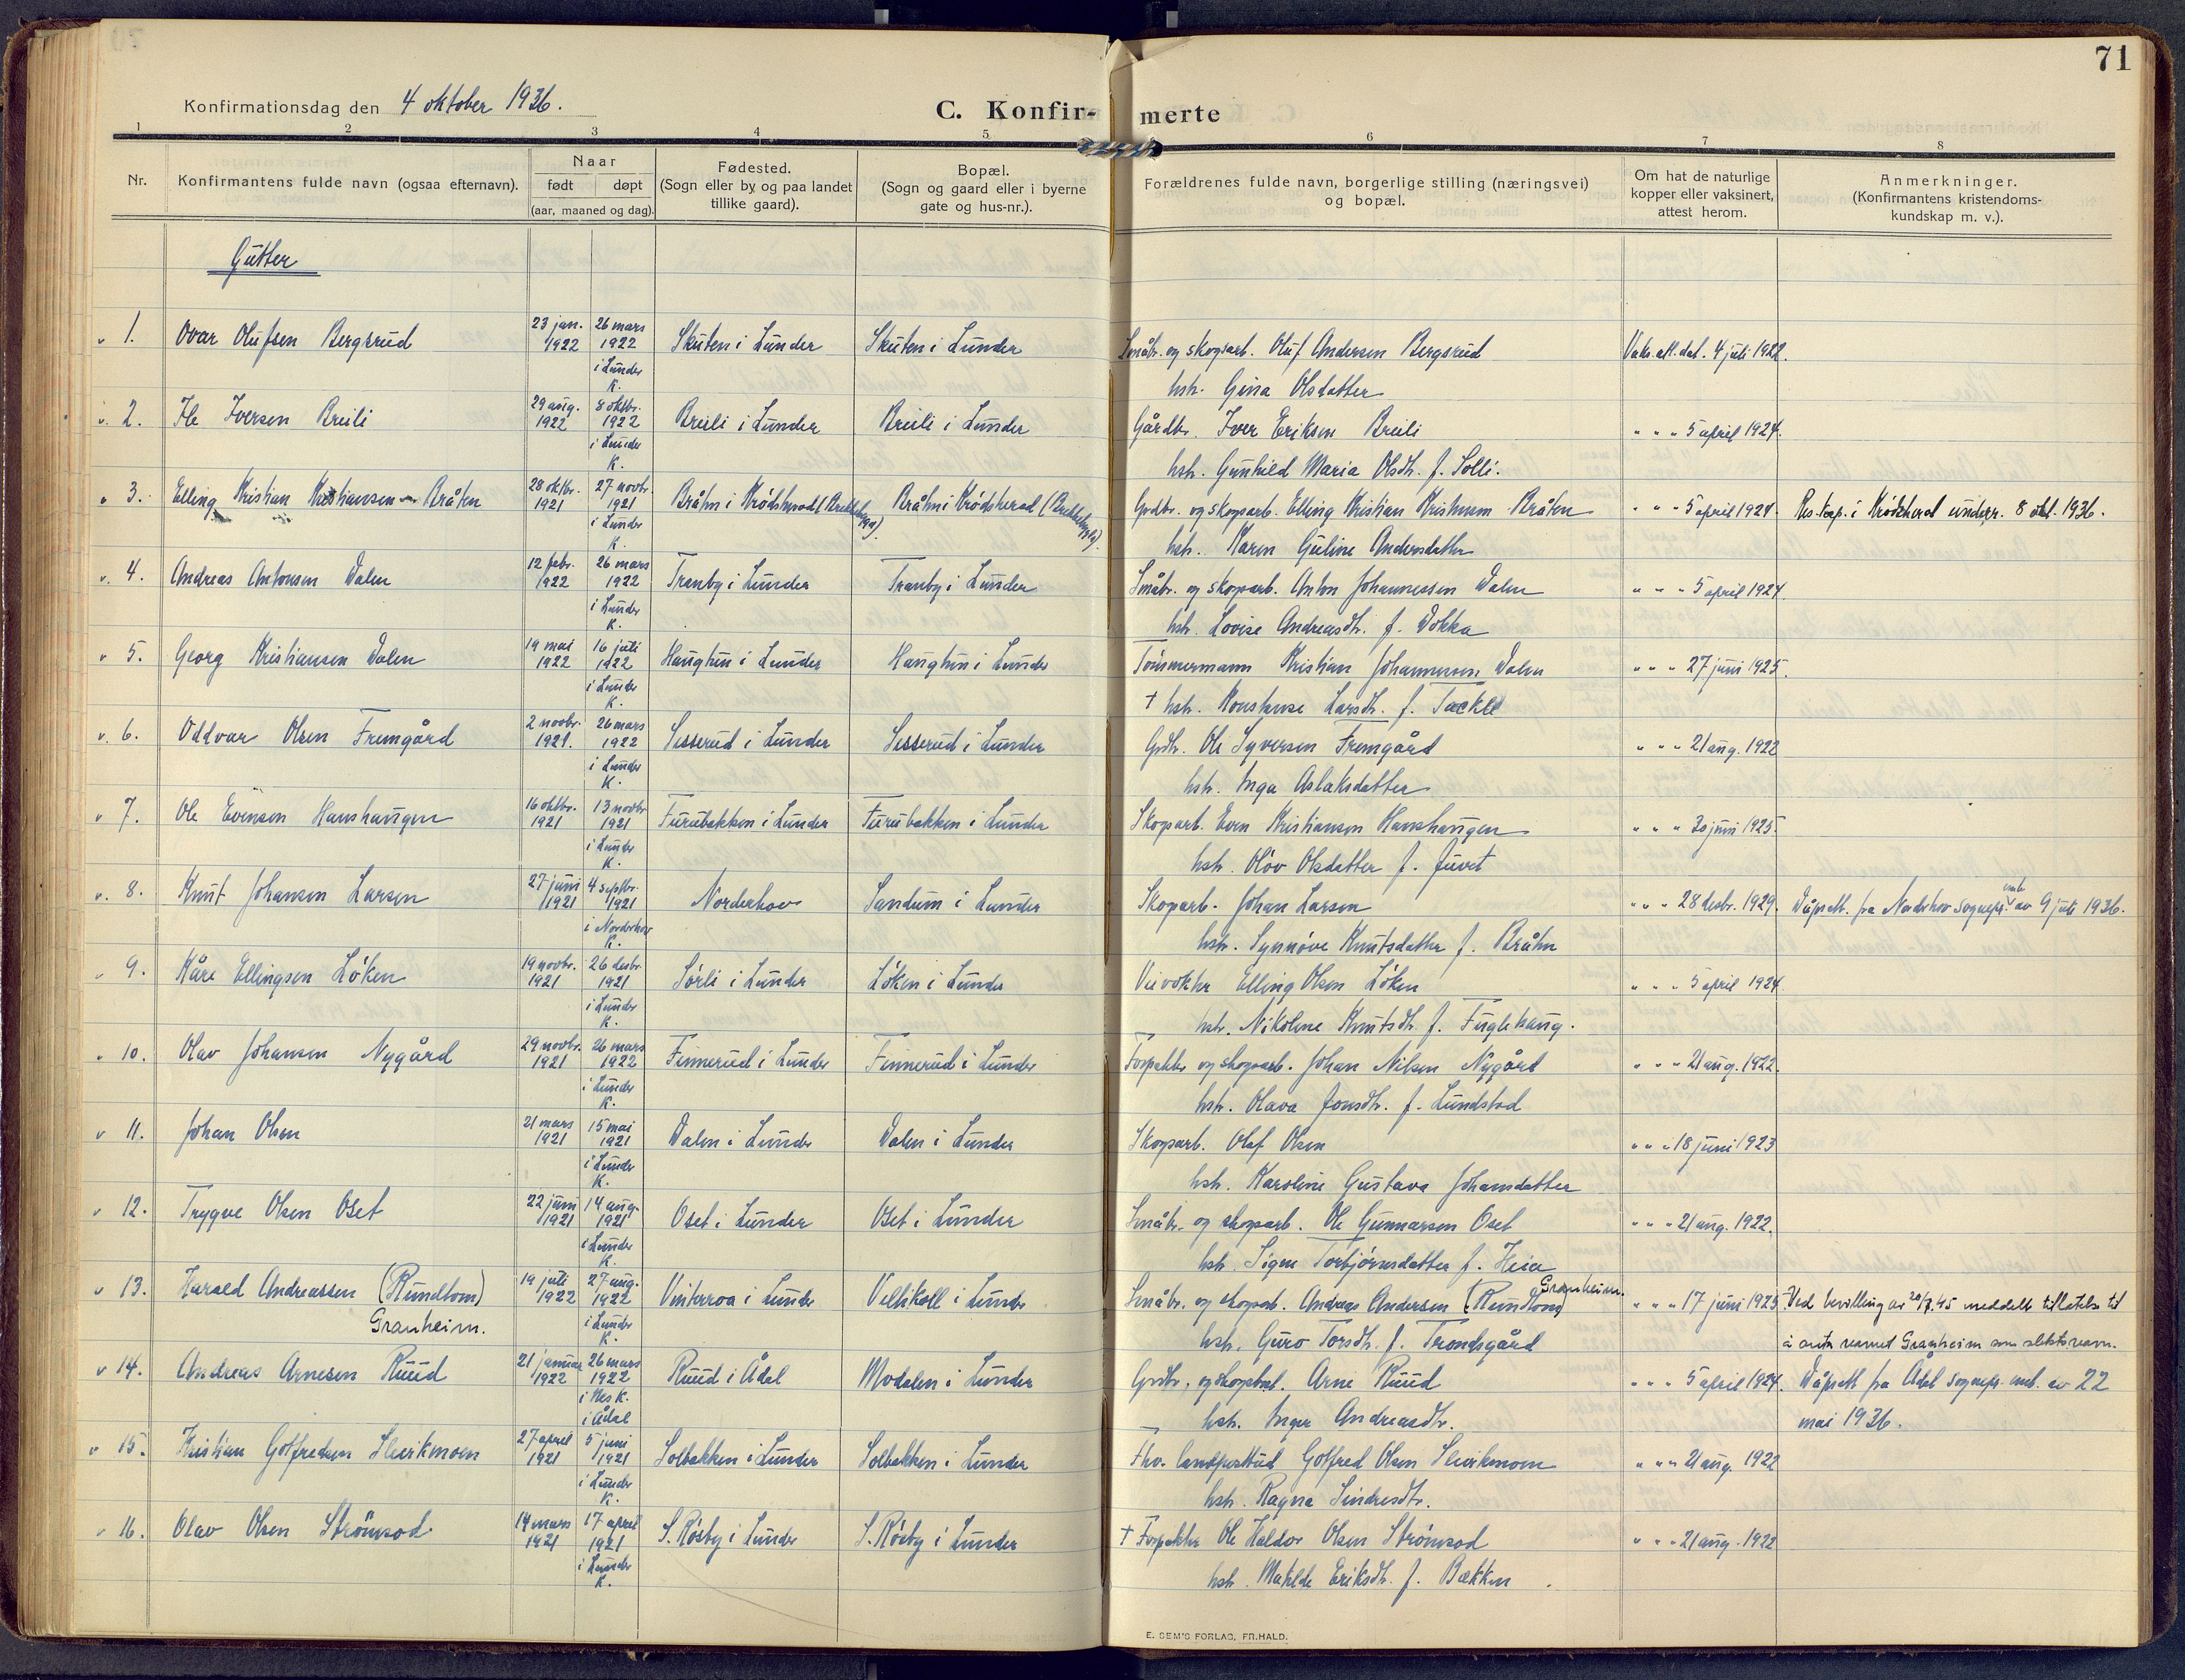 71
Konfirmationsdag den 4 oktober 1936.
C. Konfir- merte
1 2 3 4 5 6 7 8
Nr.
Konfirmantens fulde navn (ogsaa efternavn).
Naar
født døpt
(aar, maaned og dag).
Fødested.
(Sogn eller by og paa landet
tillike gaard).
Bopæl.
(Sogn og gaard eller i byerne
gate og hus-nr.).
Forældrenes fulde navn, borgerlige stilling (næringsvei)
og bopæl.
Om hat de naturlige
kopper eller vaksinert,
attest herom.
Anmerkninger.
(Konfirmantens kristendoms-
kundskap m. v.).
Gutter
1. Ovar Olufsen Bergsrud 23 jan. 1922 26 mars 1922 i Lunder K. Skuten i Lunder Skuten i Lunder Småbr. og skogsarb. Oluf Andersen Bergsrud Vaks.att.dat. 4 juli 1922.
hstr. Gina Olsdatter
2. Ole Iversen Breili 29 aug. 1922 8 oktbr. 1922 i Lunder K. Breili i Lunder Breili i Lunder Gårdbr. Iver Eriksen Breili " " " 5 april 1924.
hstr. Gunhild Maria Olsdtr. f. Solli.
3. Elling Kristian Kristiansen Bråten 28 oktbr. 1921 27 novbr. 1921 i Lunder K. Bråten i Krødsherad Bråten i Krødsherad Grdbr. og skogsarb. Elling Kristian Kristiansen Bråten " " " 5 april 1924. Res. kap. i Krødsherad underr. 8 okt. 1936.
hstr. Karen Guline Andersdatter
4. Andreas Antonsen Dalen 12 febr. 1922 26 mars 1922 i Lunder K. Tranby i Lunder Tranby i Lunder Småbr. og skogsarb. Anton Johannessen Dalen " " " 5 april 1924.
hstr. Lovise Andreasdtr. f. Dokka
5. Georg Kristiansen Dalen 19 mai 1922 16 juli 1922 i Lunder K. Haugtun i Lunder Haugtun i Lunder Tömmermann Kristian Johannessen Dalen " " " 27 juni 1925.
† hstr. Konstanse Larsdtr. f. Tackle
6. Oddvar Olsen Fremgård 2 novbr. 1921. 26 mars 1922 i Lunder K. Sesserud i Lunder Sesserud i Lunder Grdbr. Ole Syversen Fremgård " " " 21 aug. 1922
hstr. Inga Aslaksdatter
7. Ole Evensen Hanshaugen 16 oktbr. 1921 13 novbr. 1921 i Lunder K. Furubakken i Lunder Furubakken i Lunder Skogsarb. Even Kristiansen Hanshaugen " " " 30 juni 1925.
hstr. Olöv Olsdatter f. Juvet
8. Knut Johansen Larsen 27 juni 1921 4 septbr. 1921 i Norderhov K. Norderhov Sandum i Lunder Skogsarb. Johan Larsen " " " 28 desbr. 1929. Dåpsatt. fra Norderhov sognepr. emb. av 9 juli 1936.
hstr. Synnöve Knutsdatter f. Bråten
9. Kåre Ellingsen Löken 19 novbr. 1921 26 desbr. 1921 i Lunder K. Sörli i Lunder Löken i Lunder Veivokter Elling Olsen Löken " " " 5 april 1924.
hstr. Nikoline Knutsdtr. f. Fuglehaug.
10. Olav Johansen Nygård 29 novbr. 1921 26 mars 1922 i Lunder K. Finnerud i Lunder Finnerud i Lunder Forpakter og skogsarb. Johan Nilsen Nygård " " " 21 aug. 1922.
hstr. Olava Jonsdtr. f. Lundstad
11. Johan Olsen 21 mars 1921 15 mai 1921 i Lunder K. Dalen i Lunder Dalen i Lunder Skogsarb. Olaf Olsen " " " 18 juni 1923
hstr. Karoline Gustava Johansdatter
12. Trygve Olsen Oset 22 juni 1921 14 aug. 1921 i Lunder K. Oset i Lunder Oset i Lunder Småbr. og skogsarb. Ole Gunnarsen Oset " " " 21 aug. 1922.
hstr. Signe Torbjörnsdatter f. Heia
13. Harald Andreassen (Rundtom) Granheim. 19 juli 1922 27 aug. 1922 i Lunder K. Vinterroa i Lunder Veltikoll i Lunder Småbr. og skogsarb. Andreas Andersen (Rundtom) Granheim. " " " 17 juni 1925 Ved bevilling av 20/7.45 meddelt tillatelse til
hstr. Guro Torsdtr. f. Trondsgård å anta navnet Granheim som slektsnavn.
14. Andreas Arnesen Ruud 21 januar 1922 26 mars 1922 i Nes K. i Ådal Ruud i Ådal Modalen i Lunder Grdbr. og skogsarb. Arne Ruud " " " 5 april 1924. Dåpsatt. fra Ådal sognepr. emb. av 22
hstr. Inger Andreasdtr. mai 1936.
15. Kristian Gotfredsen Sleikmoen 27 april 1921 5 juni 1921 i Lunder K. Solbakken i Lunder Solbakken i Lunder Fhv. landpostbud Gotfred Olsen Sleikmoen " " " 21 aug. 1922
hstr. Ragna Sindresdtr.
16. Olav Olsen Strömsod 14 mars 1921 17 april 1921 i Lunder K. S. Rösby i Lunder S. Rösby i Lunder † Forpakter Ole Haldor Olsen Strömsod " " " 21 aug. 1922
hstr. Matilde Eriksdtr. f. Bækken
E. SEM'S FORLAG, FR.HALD.